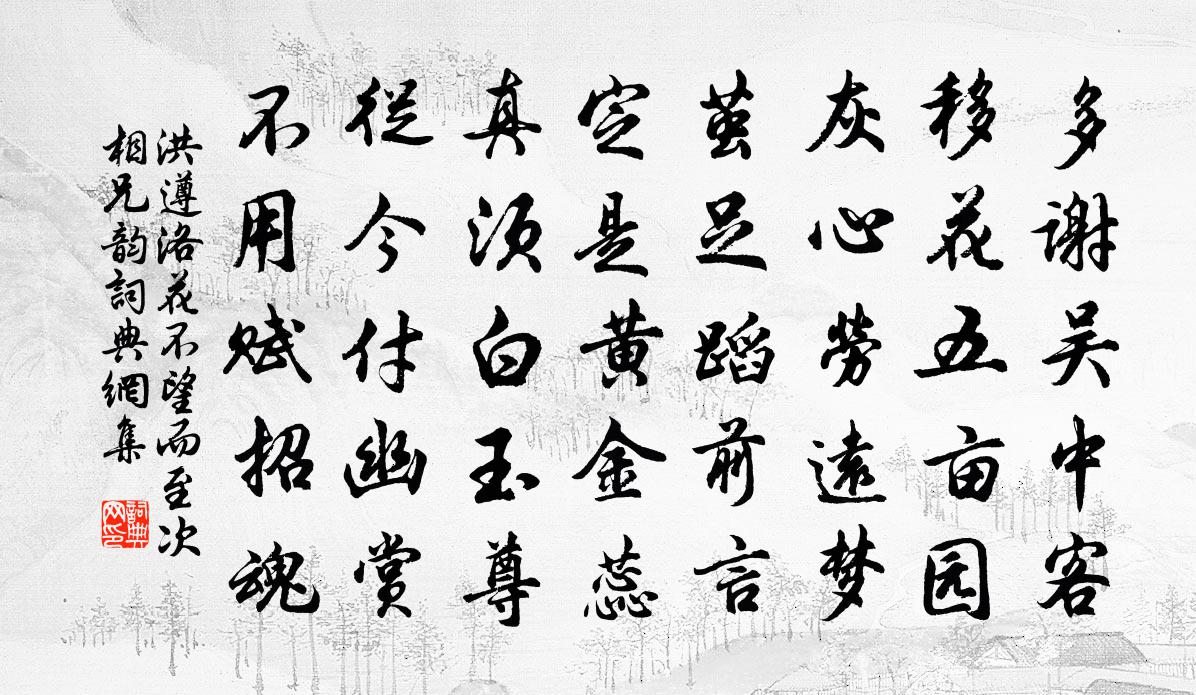 多谢吴中客
移花五亩园
灰心劳遠梦
茧足蹈前言
定是黄金蕊
真须白玉尊
從今付幽赏
不用赋招魂
洪遵洛花不望而至次
相兄韵詞典網集
詞典
网印